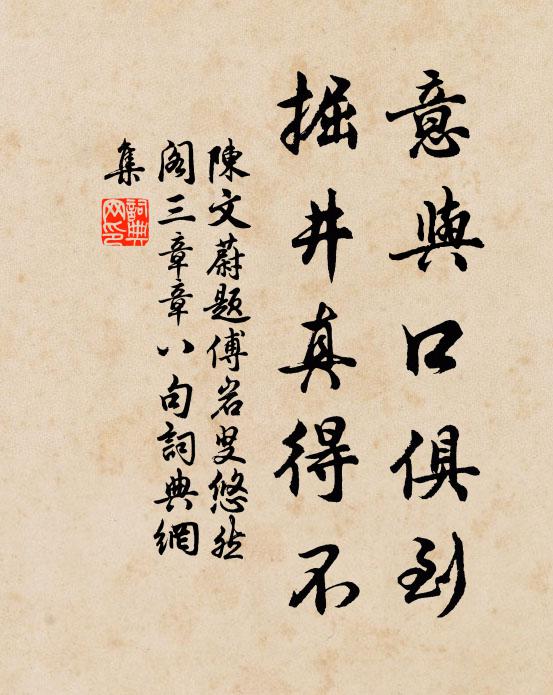 意與口俱到
掘井真得不
陳文蔚題傅岩叟悠然
閣三章章八句詞典網
集
詞典
网印